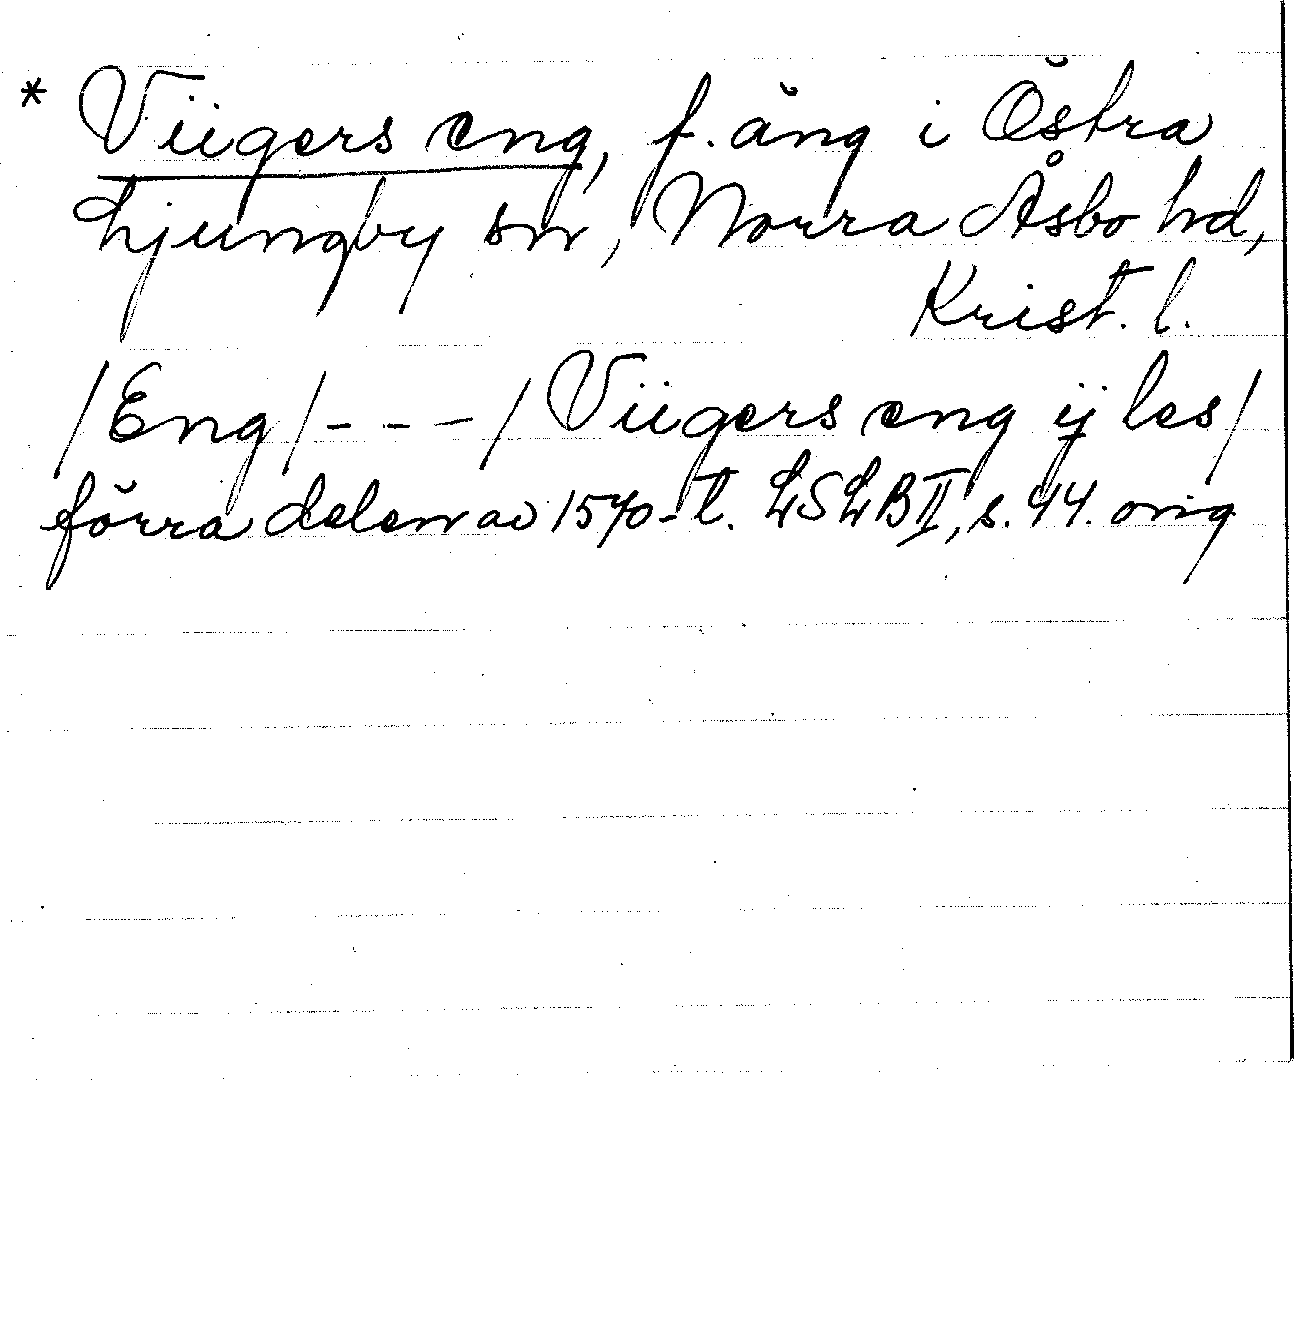 * Viigers eng, f. äng i Östra
Ljungby sn, Norra Åsbo hd,
Krist. l.
/Eng/ - - - / Viigers eng ij les/
förra delen av 1570-t. LSLB II, s. 44. orig